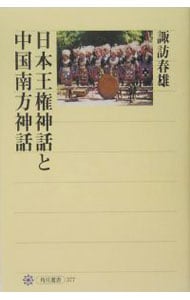 日本王権神話と
中国南方神話
諏訪春雄
角川選書 377